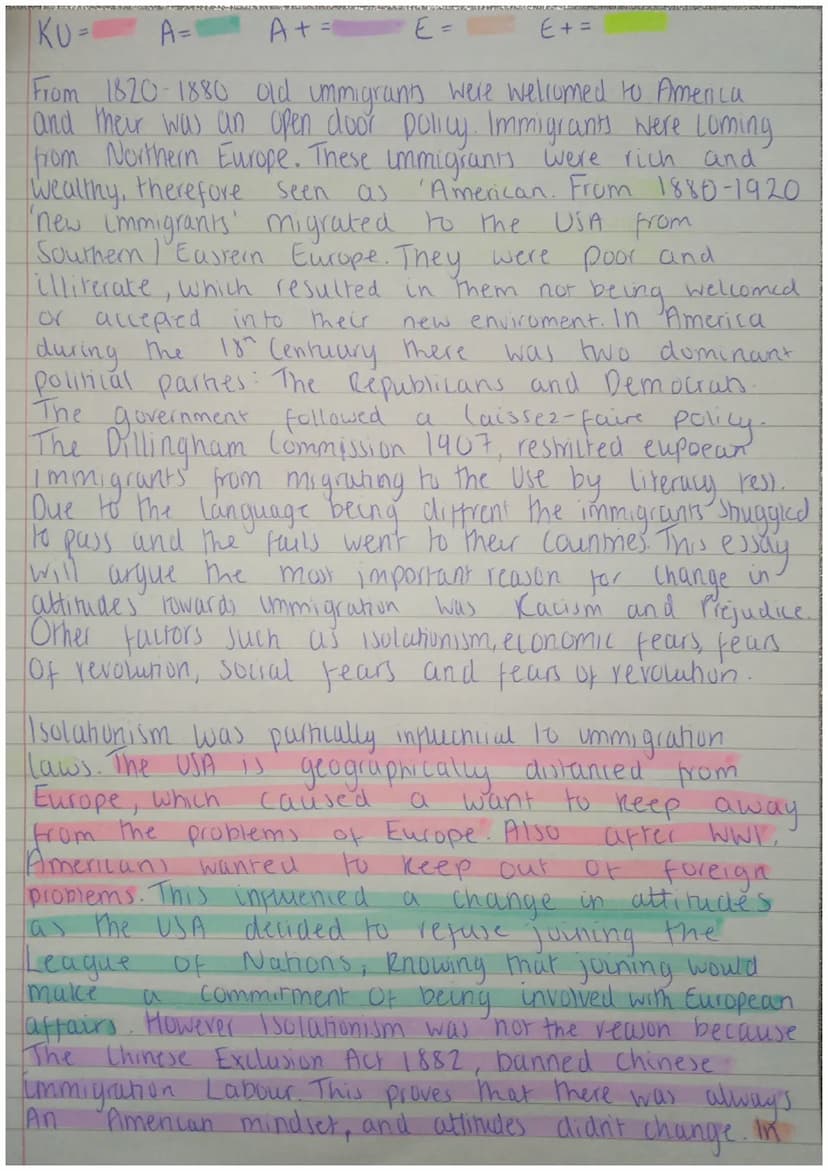 KU= A= A+= E= E+=
From 1820-1880 old immigrants were welcomed to America
and their was an open door policy. Immigrants were coming
from Northern Europe. These immigrants were rich and
wealthy, therefore seen as 'American. From 1880-1920
'new immigrants' migrated to the USA from
Southern/Eastern Europe. They were poor and
illiterate, which resulted in them not being welcomed
or accepted into their new enviroment. In America
during the 18th Centuary there was two dominant
political parties: The Republicans and Democrats.
The government followed a laissez-faire policy.
The Dillingham Commission 1907, restricted eupoean
immigrants from migrating to the Use by literacy test.
Due to the language being diffrent the immigrants struggled
to pass and the fails went to their countries. This essay
will argue the most important reason for change in
attitudes towards immigration was Racism and Prejudice.
Other factors such as isolationism, economic fears, fears
of revolution, social fears and fears of revolution.
Isolationism was partically influencial to immigration
laws. The USA is geographically distanced from
Europe, which caused a want to keep away
from the problems of Europe. Also after WW1,
Americans wanted to keep out of foreign
problems. This influenced a change in attitudes
as the USA decided to refuse joining the
League of Nations, knowing that joining would
make a commitment of being involved with European
affairs. However Isolationism was not the reason because
The Chinese Exclusion Act 1882, banned chinese
immigration Labour. This proves that there was always
An American mindset, and attitudes didn't change. In